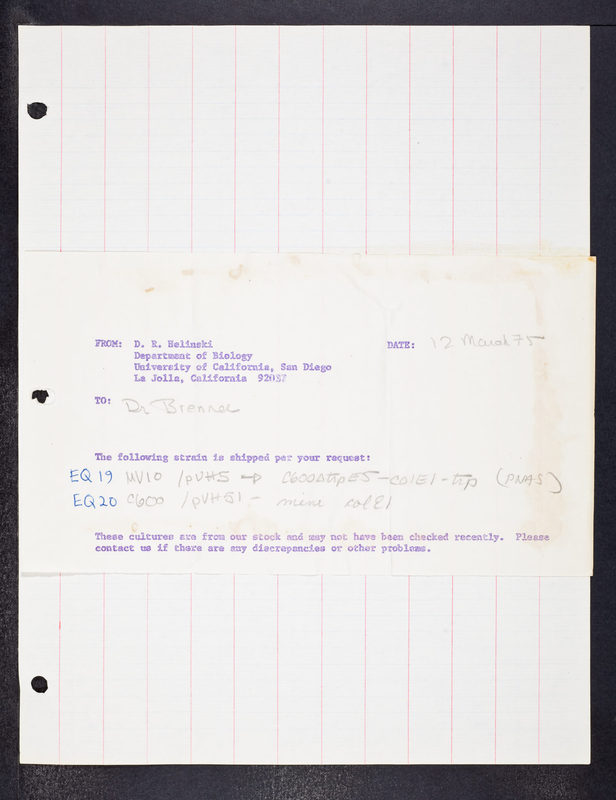 FROM: D. R. Helinski
Department of Biology
University of California, San Diego
La Jolla, California 92037
DATE: 12 March 75
TO: Dr Brenner
The following strain is shipped per your request:
EQ 19 MV10 /pVH5 → C600ΔtrpE5-colE1-trp (PNAS)
EQ 20 C600 /pVH51 - mini colE1
These cultures are from our stock and may not have been checked recently. Please
contact us if there are any discrepancies or other problems.